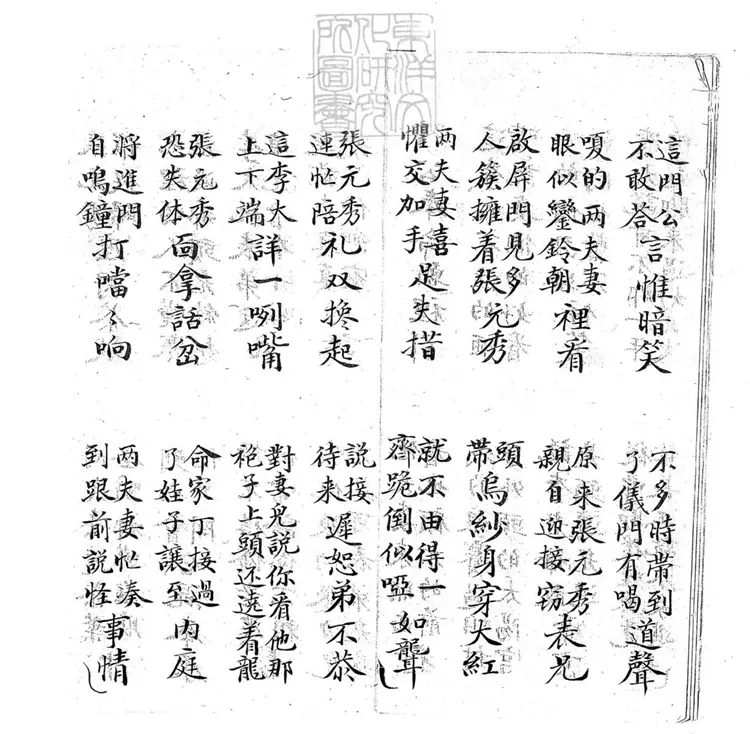 東洋文化研究所圖書
這門公不敢荅言惟暗笑
不多時帶到了儀門有喝道聲
嗄的两夫妻眼似鑾鈴朝裡看
原来張元秀親自迎接窃表兄
啟屏門見多人簇擁着張元秀
頭帶烏紗身穿大紅
两夫妻喜懼交加手足失措
就不由得一齊跪倒似啞如聾
張元秀連忙陪礼双搀起
說接待来遲恕弟不恭
這李大上下端詳一咧嘴
對妻兒說你看他那袍子上頭还遶着龍
張元秀恐失体面拿話岔
命家丁接過了娃子讓至内庭
將進門自鳴鐘打噹〻响
两夫妻忙凑到跟前說怪事情